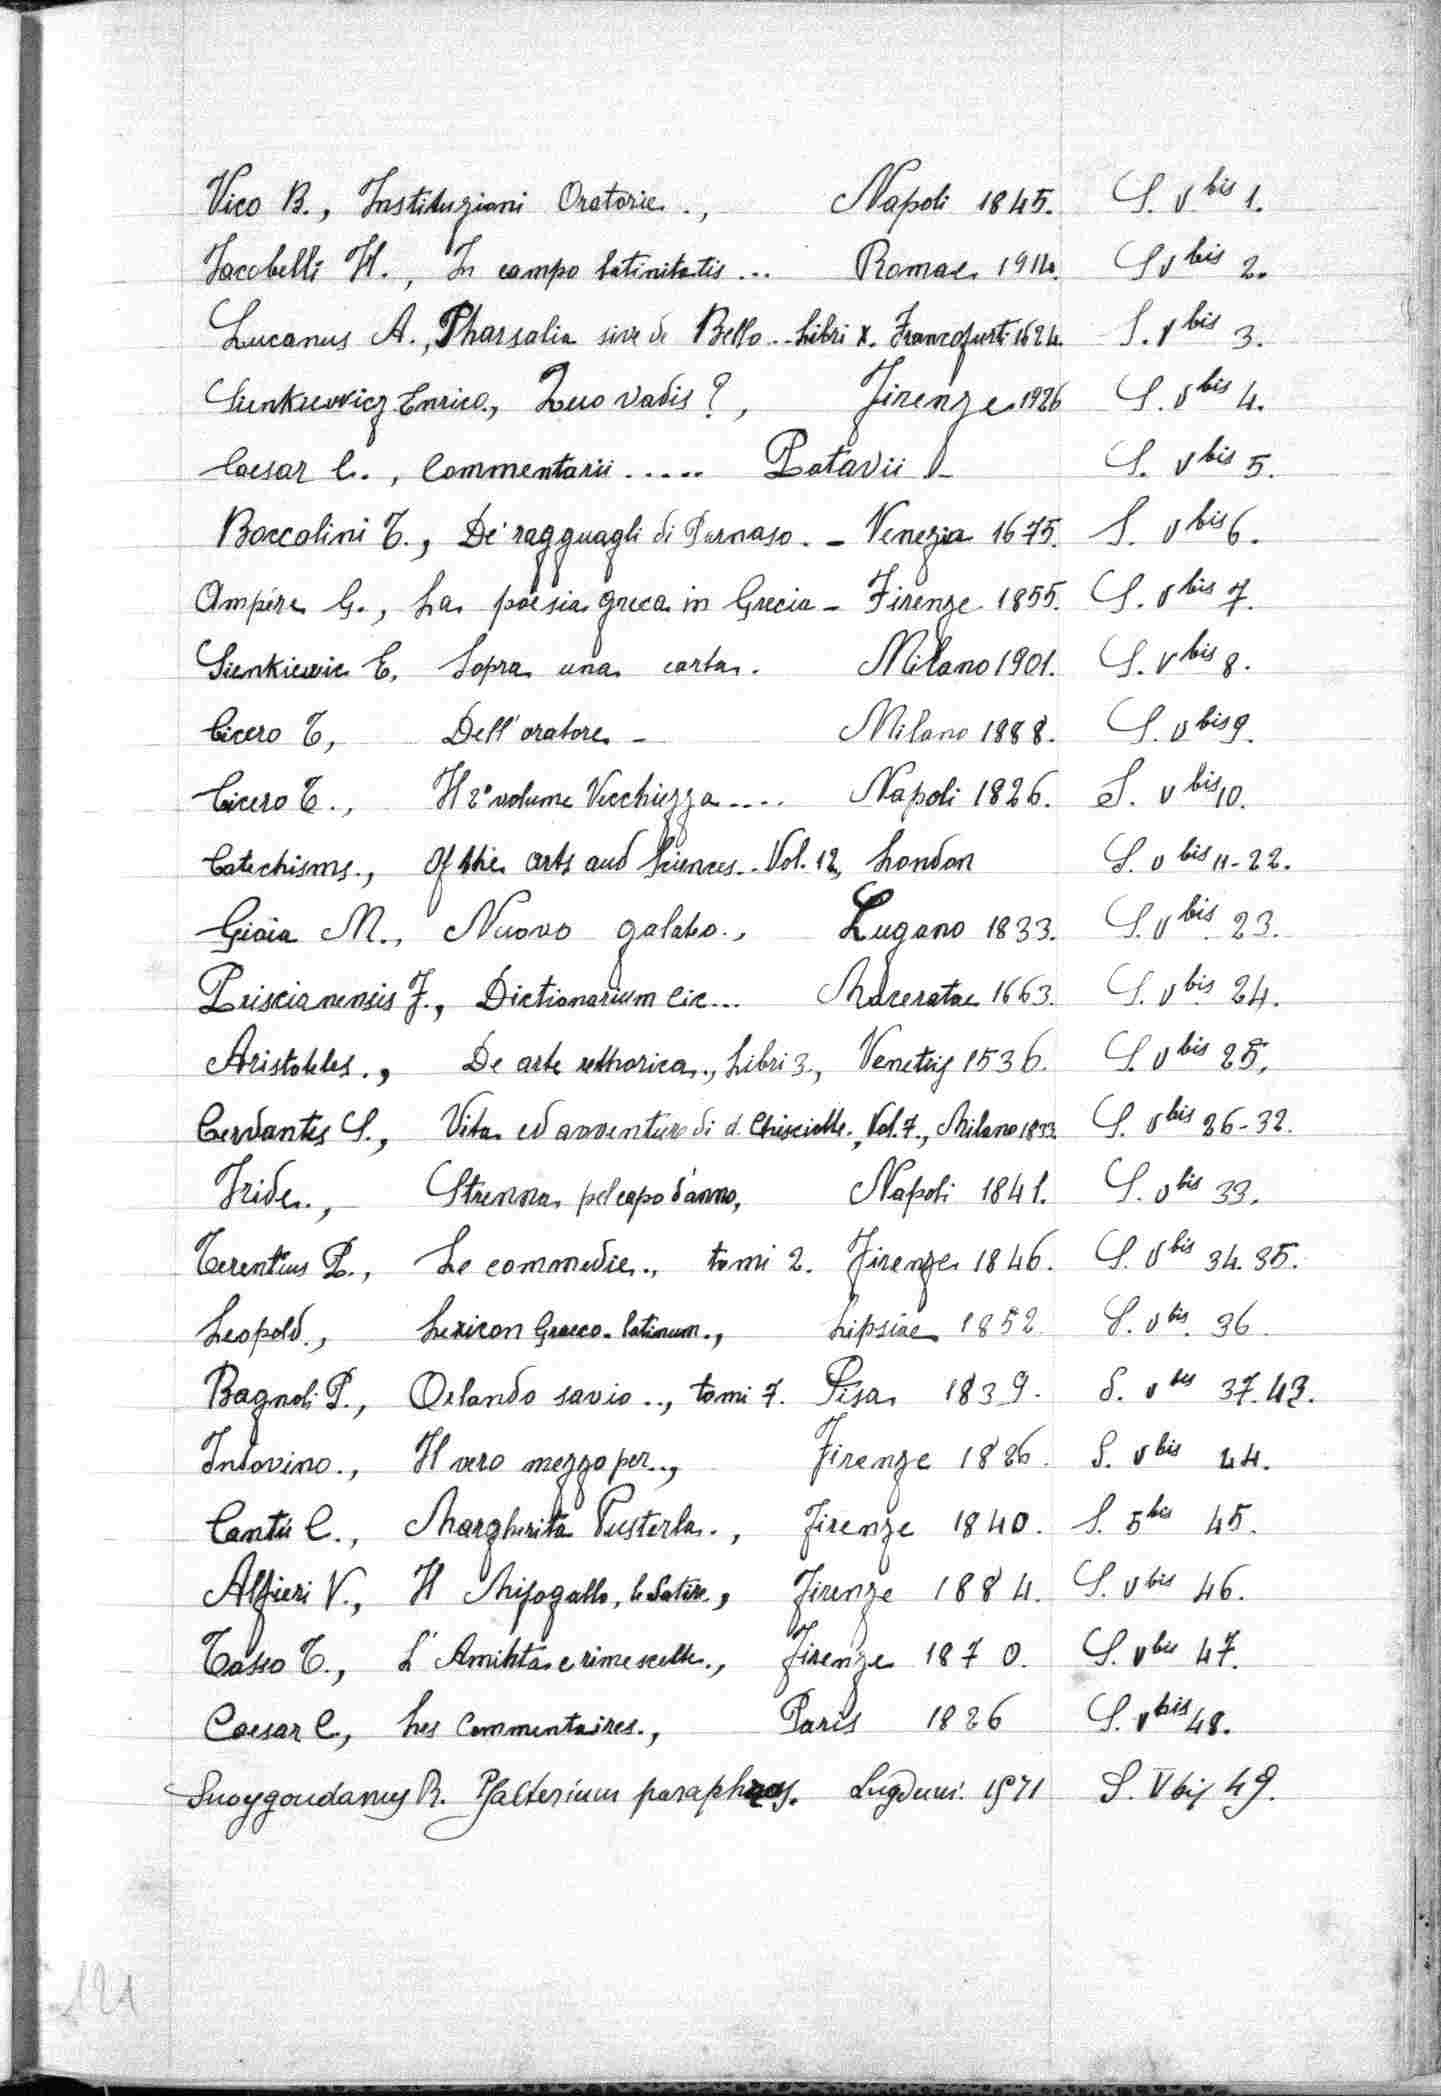 Vico B., Instituzioni Oratorie., Napoli 1845. S. V bis 1.
Jacobelli H., In campo latinitatis ... Romae 1914. S V bis 2.
Lucanus A., Pharsalia sive de Bello.. Libri X. Francofurti 1624. S. V bis 3.
Sienkievvicz Enrico., Quo vadis?, Firenze 1926 S. V bis 4.
Caesar C., Commentarii ..... Patavii S. V bis 5.
Boccolini T., De' ragguagli di Parnaso. - Venezia 1675. S. V bis 6.
Ampère G., La poesia greca in Grecia - Firenze 1855. S. V bis 7.
Sienkiewic E. Sopra una carta. Milano 1901. S. V bis 8.
Cicero T, Dell' oratore - Milano 1888. S. V bis 9.
Cicero T., Il 2° volume Vecchiezza .... Napoli 1826. S. V bis 10.
Catechisms., Of the arts and Sciences.. Vol. 12, London S. V bis 11-22.
Gioia M., Nuovo galateo., Lugano 1833. S. V bis 23.
Priscianensis F., Dictionarium Cic... Maceratae 1663. S. V bis 24.
Aristoteles., De arte rethorica., Libri 3., Venetiis 1536. S. V bis 25.
Cervantes S., Vita ed avventure di d. Chisciotte., Vol. 7., Milano 1833 S. V bis 26-32.
Iride., Strenna pel capo d'anno, Napoli 1841. S. V bis 33.
Terentius P., Le commedie., tomi 2. Firenze 1846. S. V bis 34. 35.
Leopold., Lexicon Graeco-latinum., Lipsiae 1852 S. V bis. 36
Bagnoli P., Orlando savio .., tomi 7. Pisa 1839. S. V bis 37.43.
Indovino., Il vero mezzo per.., Firenze 1826. S. V bis 44.
Cantù C., Margherita Pusterla., Firenze 1840. S. 5 bis 45.
Alfieri V., Il Misogallo, le Satire., Firenze 1884. S. V bis 46.
Tasso T., L' Aminta e rime scelte., Firenze 1870. S. V bis 47.
Caesar C, Les Commentaires., Paris 1826 S. V bis 48.
Snoygoudanus R. Psalterium paraphras. Lugduni 1571 S. V bis 49.
121